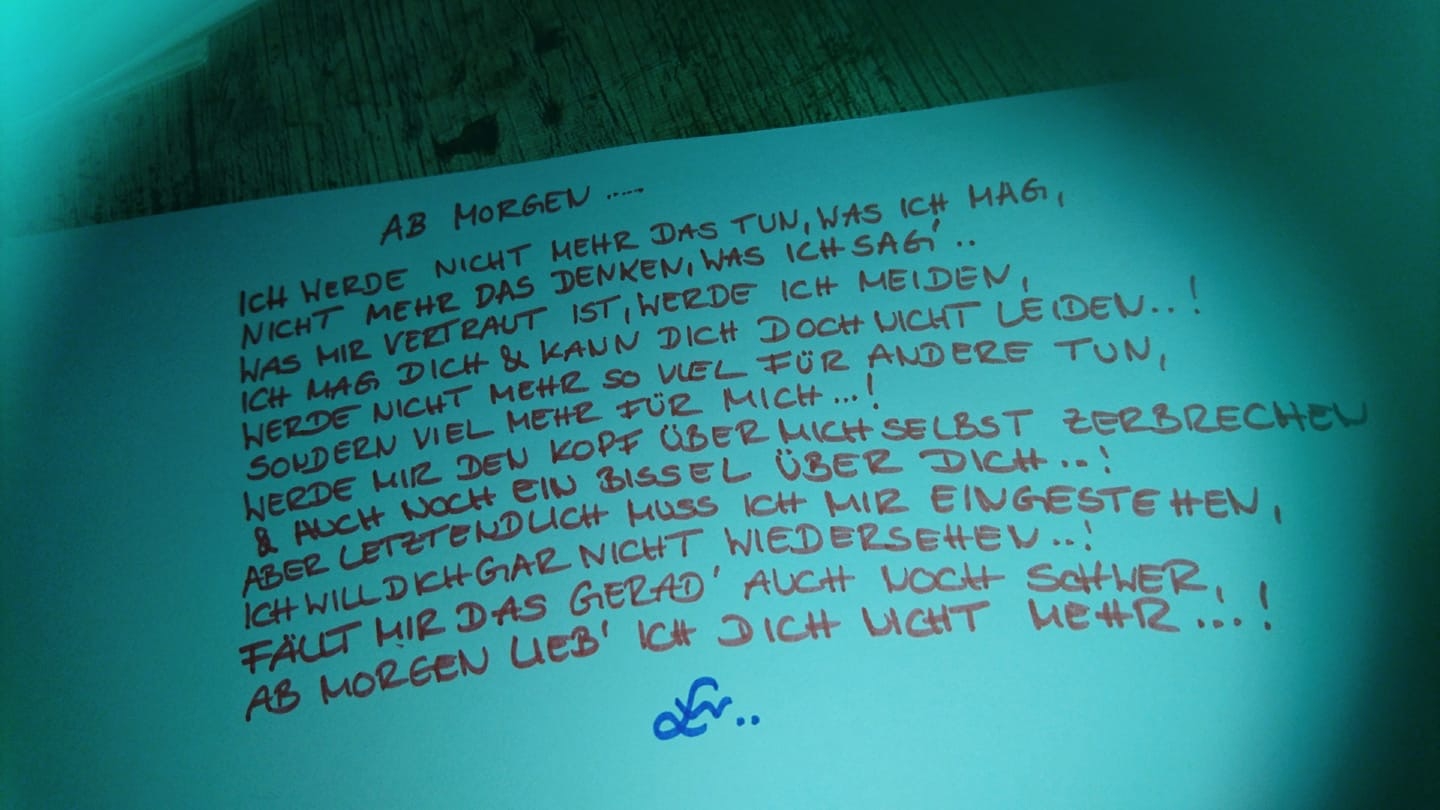 AB MORGEN .....
ICH WERDE NICHT MEHR DAS TUN, WAS ICH MAG,
NICHT MEHR DAS DENKEN, WAS ICH SAG'..
WAS MIR VERTRAUT IST, WERDE ICH MEIDEN,
ICH MAG DICH & KANN DICH DOCH NICHT LEIDEN..!
WERDE NICHT MEHR SO VIEL FÜR ANDERE TUN,
SONDERN VIEL MEHR FÜR MICH...!
WERDE MIR DEN KOPF ÜBER MICH SELBST ZERBRECHEN
& AUCH NOCH EIN BISSEL ÜBER DICH...!
ABER LETZTENDLICH MUSS ICH MIR EINGESTEHEN,
ICH WILL DICH GAR NICHT WIEDERSEHEN..!
FÄLLT MIR DAS GERAD' AUCH NOCH SCHWER,
AB MORGEN LIEB' ICH DICH NICHT MEHR...!